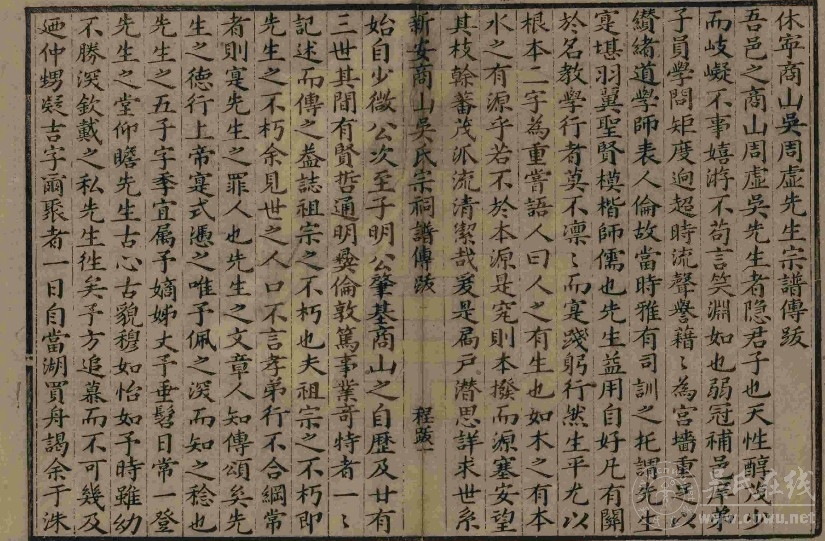 休寧商山吳周虛先生宗譜傳跋
吾邑之商山周虛吳先生者隱君子也天性醇改少
而岐嶷不事嬉游不苟言笑淵如也弱冠補邑庠弟
子員學問矩度逈超時流聲譽籍〻為宮墻重足以
纘緒道學師表人倫故當時雅有司訓之托謂先生
寔堪羽翼聖賢模楷師儒也先生益用自好凡有關
於名教學行者莫不凛〻而寔踐躬行然生平尤以
根本二字為重嘗語人曰人之有生也如木之有本
水之有源乎若不於本源是究則本撥而源塞安望
其枝榦蕃茂派流清潔哉爰是扄戸潜思詳求世系
新安商山吳氏宗祠譜傳跋
程跋一
始自少微公次至子明公肇基商山之自歷及廿有
三世其間有賢哲通明彜倫敦篤事業竒特者一〻
記述而傳之益誌祖宗之不朽也夫祖宗之不朽即
先生之不朽余見世之人口不言孝弟行不合綱常
者則寔先生之罪人也先生之文章人知傳頌矣先
生之德行上帝寔式憑之唯予佩之深而知之稔也
先生之五子字季宜属予嫡姊丈予垂髫日常一登
先生之堂仰瞻先生古心古貌穆如怡如予時雖幼
不勝深欽戴之私先生徃矣予方追慕而不可幾及
廼仲甥凝吉字爾聚者一日自當湖買舟謁余于洙
吴氏在线
www.cnwu.net